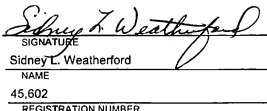 Sidney L Weatherford
SIGNATURE
Sidney L. Weatherford
NAME
45,602
REGISTRATION NUMBER